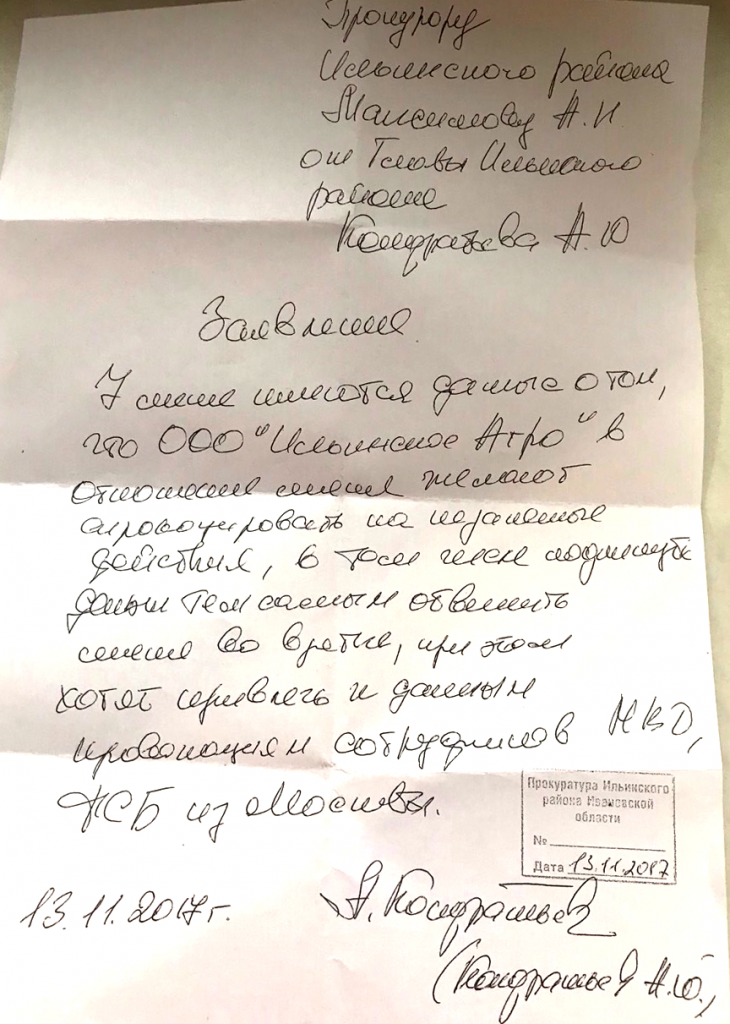 Прокурору
Ильинского района
Максимову А.И
от Главы Ильинского
района
Кондратьева А.Ю
Заявление
У меня имеются данные о том,
что ООО "Ильинское Агро" в
отношение меня желают
спровоцировать на незаконные
действия, в том числе подкинуть
деньги тем самым обвинить
меня во взятке, при этом
хотят привлечь к данным
провокациям сотрудников МВД,
ФСБ из Москвы.
Прокуратура Ильинского
района Ивановской
области
№
Дата 13.11.2017
13.11.2017г.
А. Кондратьев
(Кондратьев А.Ю.)